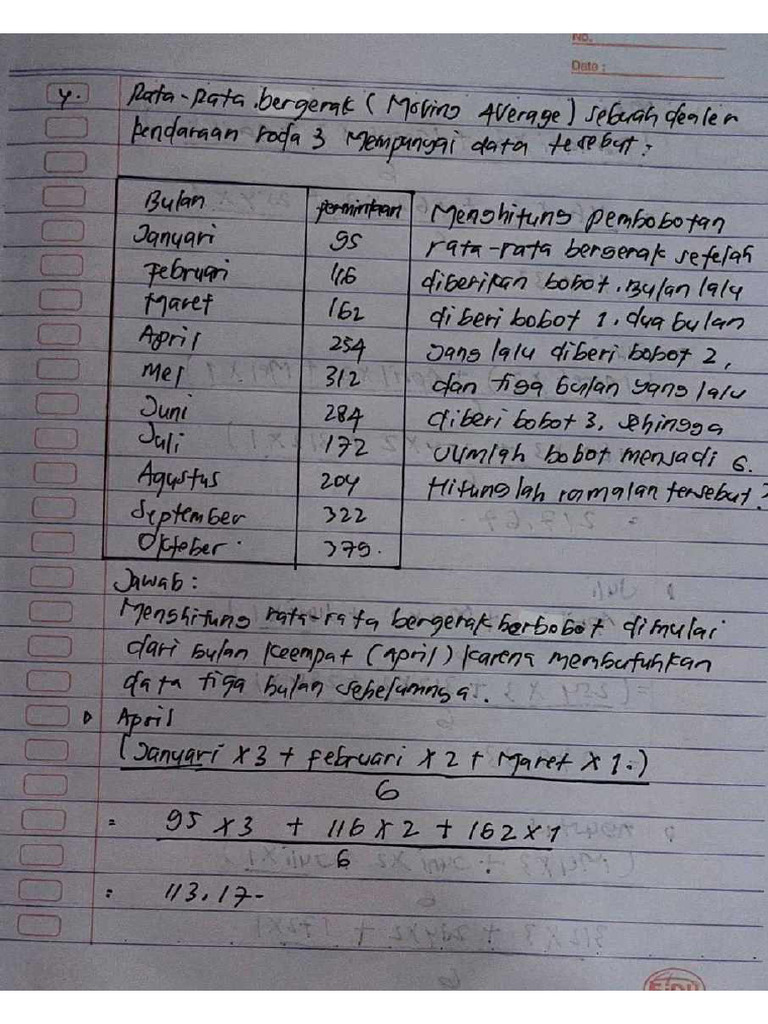 No.
Date :
4. Rata-Rata bergerak (Moving Average) sebuah dealer
kendaraan roda 3 mempunyai data tersebut :
Bulan permintaan
Januari 95
Februari 116
Maret 162
April 254
Mei 312
Juni 284
Juli 172
Agustus 204
September 322
Oktober. 379.
Menghitung pembobotan
rata-rata bergerak setelah
diberikan bobot. Bulan lalu
diberi bobot 1, dua bulan
yang lalu diberi bobot 2,
dan tiga bulan yang lalu
diberi bobot 3, sehingga
Jumlah bobot menjadi 6.
Hitunglah ramalan tersebut?
Jawab :
Menghitung rata-rata bergerak berbobot dimulai
dari bulan keempat (April) karena membutuhkan
data tiga bulan sebelumnya.
April
(Januari x 3 + Februari x 2 + Maret x 1.)
6
= 95 x 3 + 116 x 2 + 162 x 1
6
= 113,17-